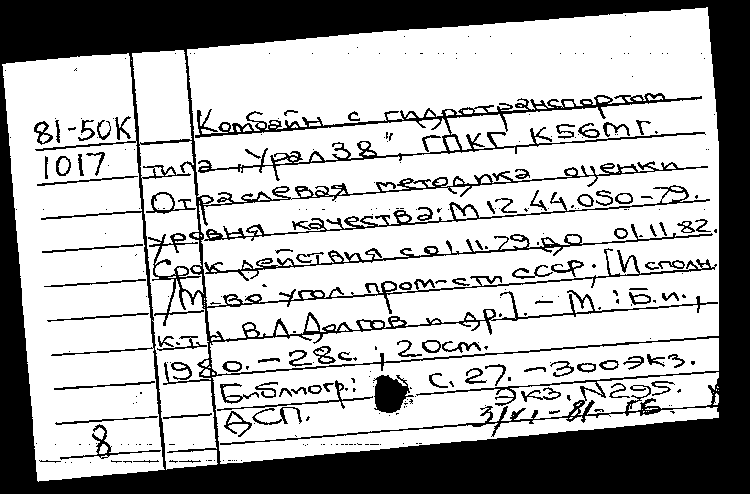 81-50К
1017
Комбайн с гидротранспортом
типа „Урал 38", ГПКГ, К56МГ.
Отраслевая методика оценки
уровня качества: М 12.44.050-79.
Срок действия с 01.11.79 до 01.11.82.
/М-во угол. пром-сти СССР; [Исполн.
к.т.н. В.Л. Долгов и др.]. - М.: Б.и.,
1980. - 28с. ; 20см.
Библиогр.: с. 27. - 300экз.
Экз. N295.
ДСП.
8